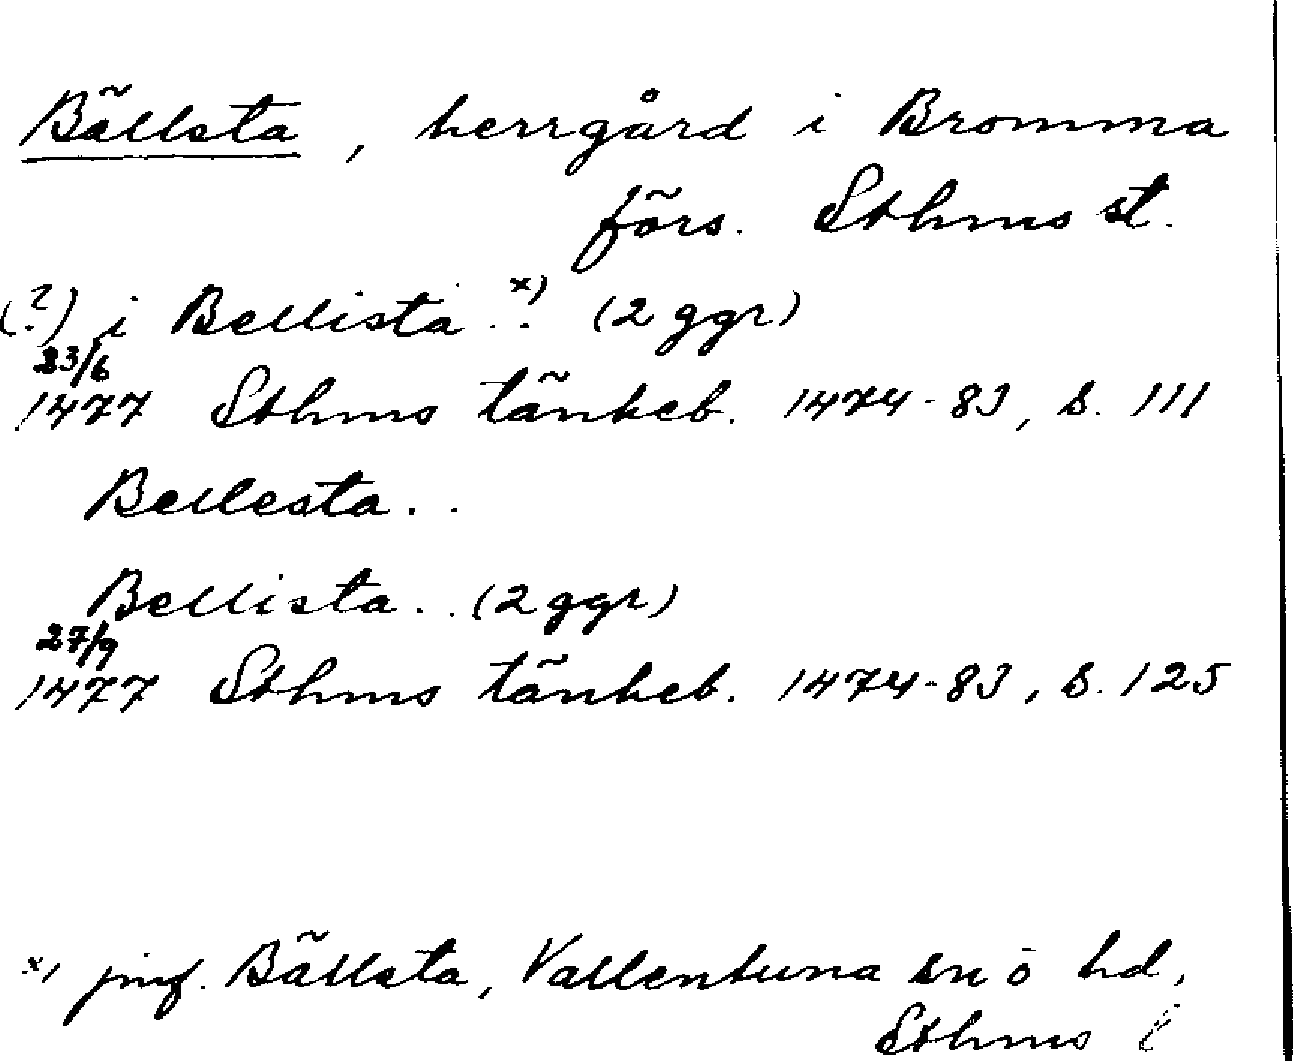 Bällsta, herrgård i Bromma
förs. Sthms st.
(?) i Bellista..x) (2 ggr)
23/6
1477 Sthms tänkeb. 1474-83, s. 111
Bellesta..
Bellista.. (2 ggr)
27/9
1477 Sthms tänkeb. 1474-83, s. 125
x) jmf. Bällsta, Vallentuna sn o hd,
Sthms l